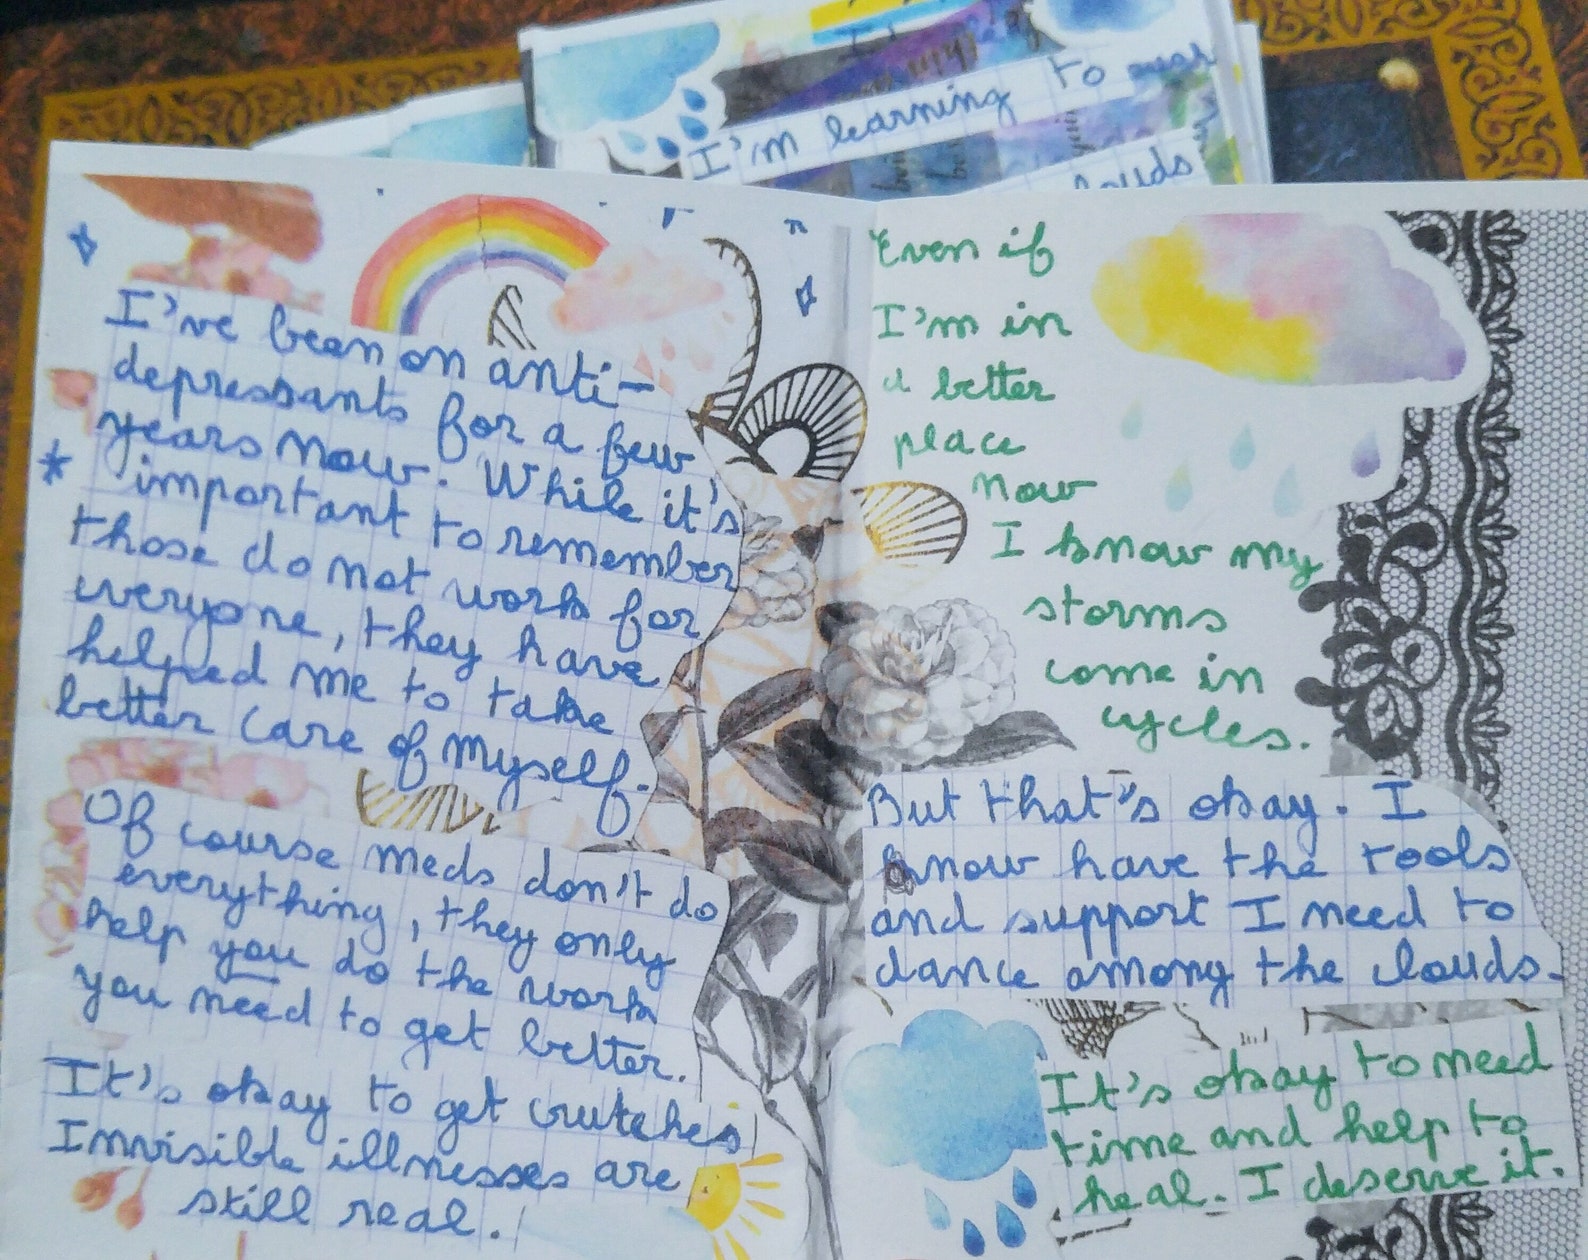 I'm learning to
clouds
I've been on anti-
depressants for a few
years now. While it's
* important to remember
those do not work for
everyone, they have
helped me to take
better care of myself.
Of course meds don't do
everything, they only
help you do the work
you need to get better.
It's okay to get crutches
Invisible illnesses are
still real.
Even if
I'm in
a better
place
now
I know my
storms
come in
cycles.
But that's okay. I
know have the tools
and support I need to
dance among the clouds.
It's okay to need
time and help to
heal. I deserve it.